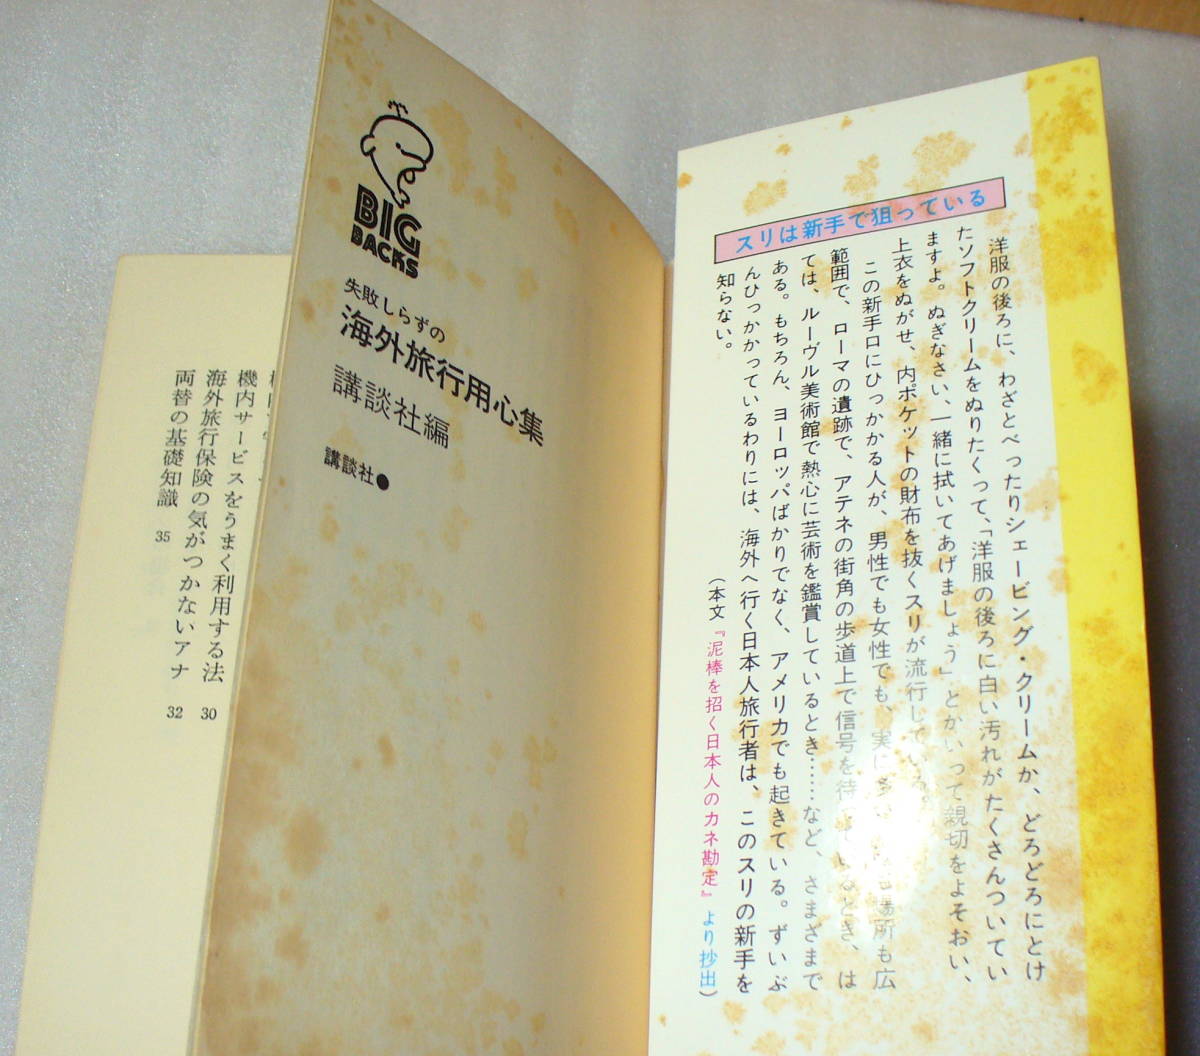 スリは新手で狙っている
洋服の後ろに、わざとべったりシェービング・クリームか、どろどろにとけ
たソフトクリームをぬりたくって、「洋服の後ろに白い汚れがたくさんついてい
ますよ。ぬぎなさい、一緒に拭いてあげましょう」とかいって親切をよそおい、
上衣をぬがせ、内ポケットの財布を抜くスリが流行している。
この新手口にひっかかる人が、男性でも女性でも、実に多い。場所も広
範囲で、ローマの遺跡で、アテネの街角の歩道上で信号を待っているとき、は
ては、ルーヴル美術館で熱心に芸術を鑑賞しているとき……など、さまざまで
ある。もちろん、ヨーロッパばかりでなく、アメリカでも起きている。ずいぶ
んひっかかっているわりには、海外へ行く日本人旅行者は、このスリの新手を
知らない。
(本文『泥棒を招く日本人のカネ勘定』より抄出)
BIG
BACKS
失敗しらずの
海外旅行用心集
講談社編
講談社●
機内サービスをうまく利用する法 30
海外旅行保険の気がつかないアナ 32
両替の基礎知識 35